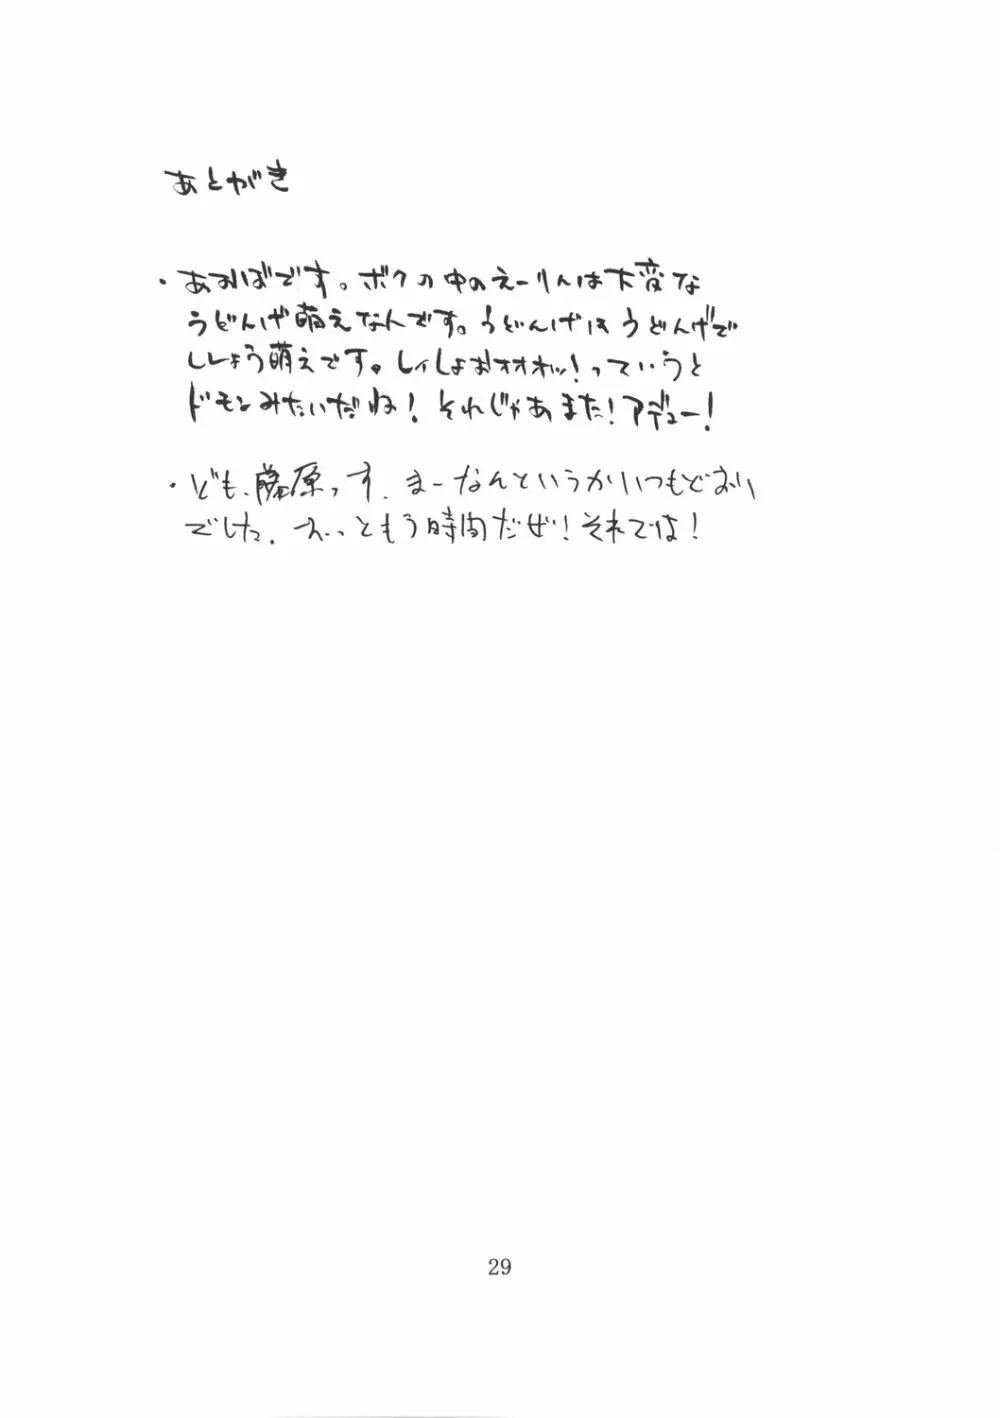 あとがき
・あおばです。ボクの中のえーりんは大変な
うどんげ萌えなんです。うどんげはうどんげで
ししょう萌えです。しぃしょおオオオッ!っていうと
ドモンみたいだね!それじゃあまた!アデュー!
・ども、藤原っす。まーなんというかいつもどおり
でした。えーっともう時間だぜ!それでは!
29